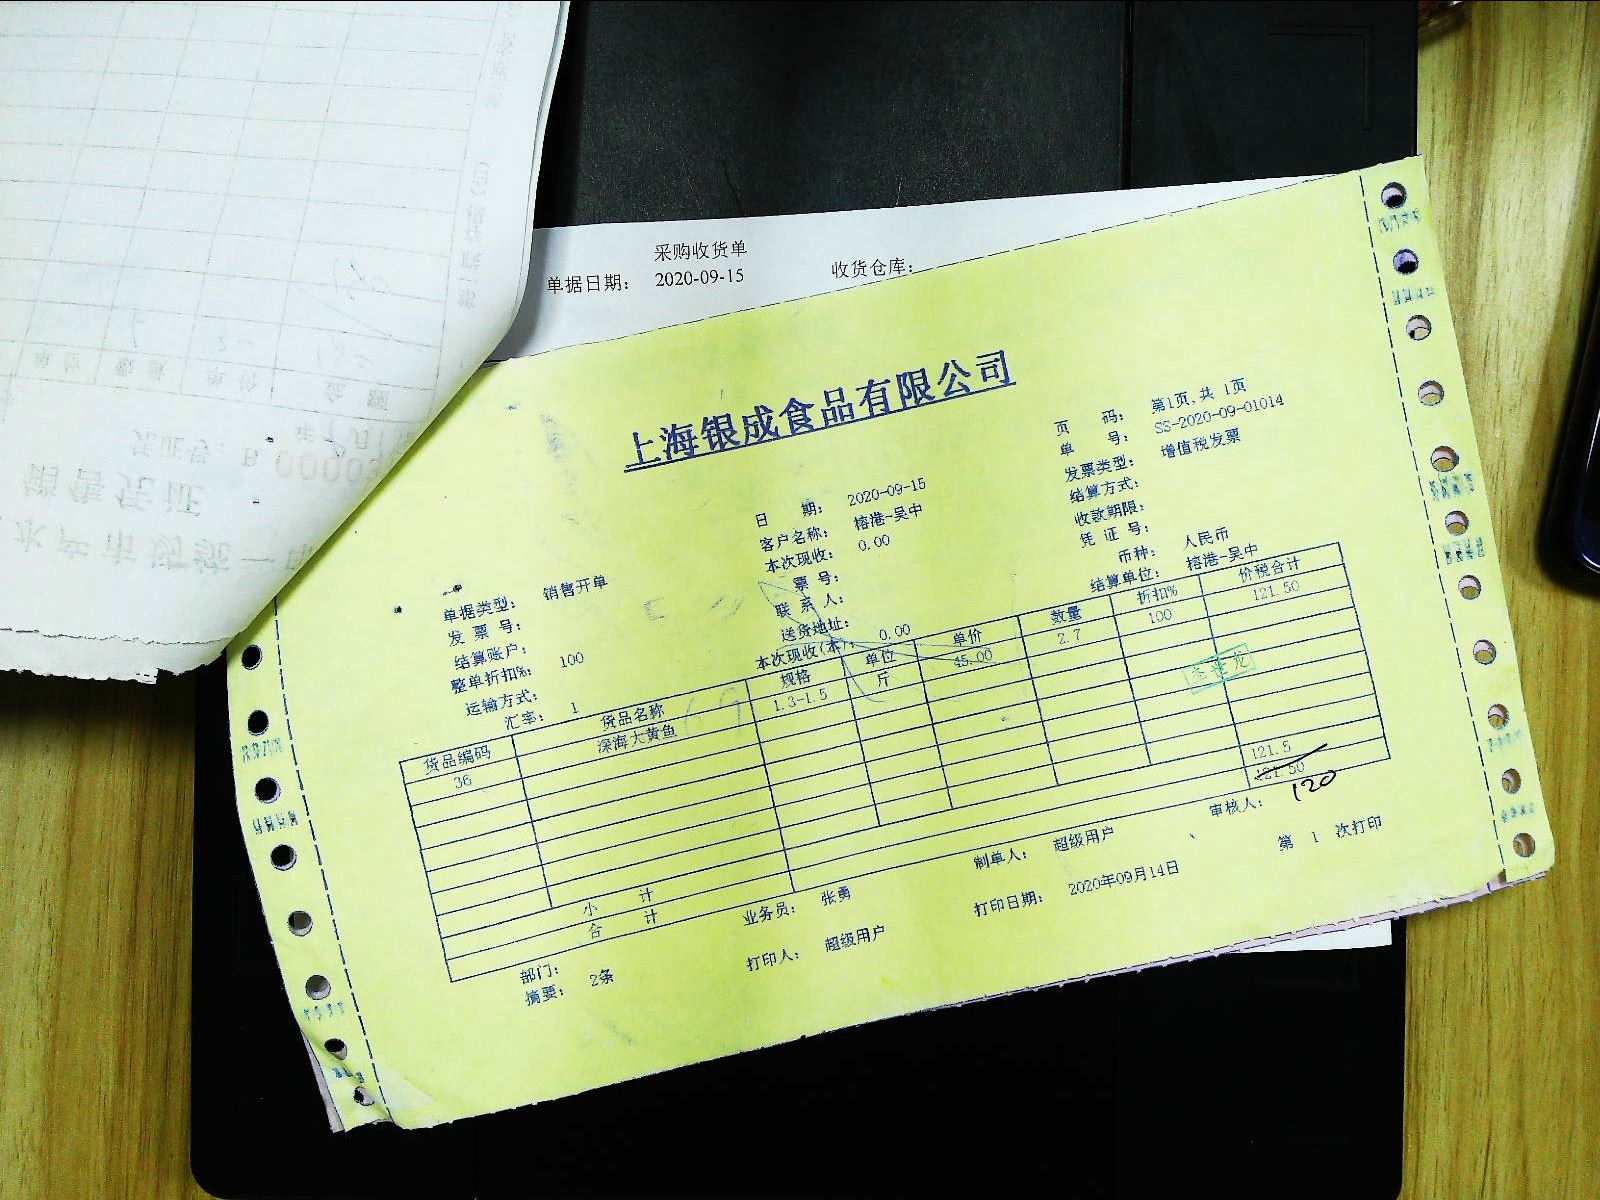 采购收货单
单据日期： 2020-09-15 收货仓库：
上海银成食品有限公司
页 码： 第1页,共 1页
单 号： SS-2020-09-01014
单据类型： 销售开单 日 期： 2020-09-15 发票类型： 增值税发票
发 票 号： 客户名称： 榕港-吴中 结算方式：
结算账户： 本次现收： 0.00 收款期限：
整单折扣%： 100 票 号： 凭 证 号：
运输方式： 联 系 人： 币种： 人民币
汇率： 1 送货地址： 结算单位： 榕港-吴中
本次现收(本)： 0.00
货品编码 货品名称 规格 单位 单价 数量 折扣% 价税合计
36 深海大黄鱼 1.3-1.5 斤 45.00 2.7 100 121.50
小 计 121.5
合 计 121.50
120
部门： 业务员： 张勇 制单人： 超级用户 审核人：
摘要： 2条 打印人： 超级用户 打印日期： 2020年09月14日 第 1 次打印
销售凭证
凭证号：B
单位 数量 单价 金额